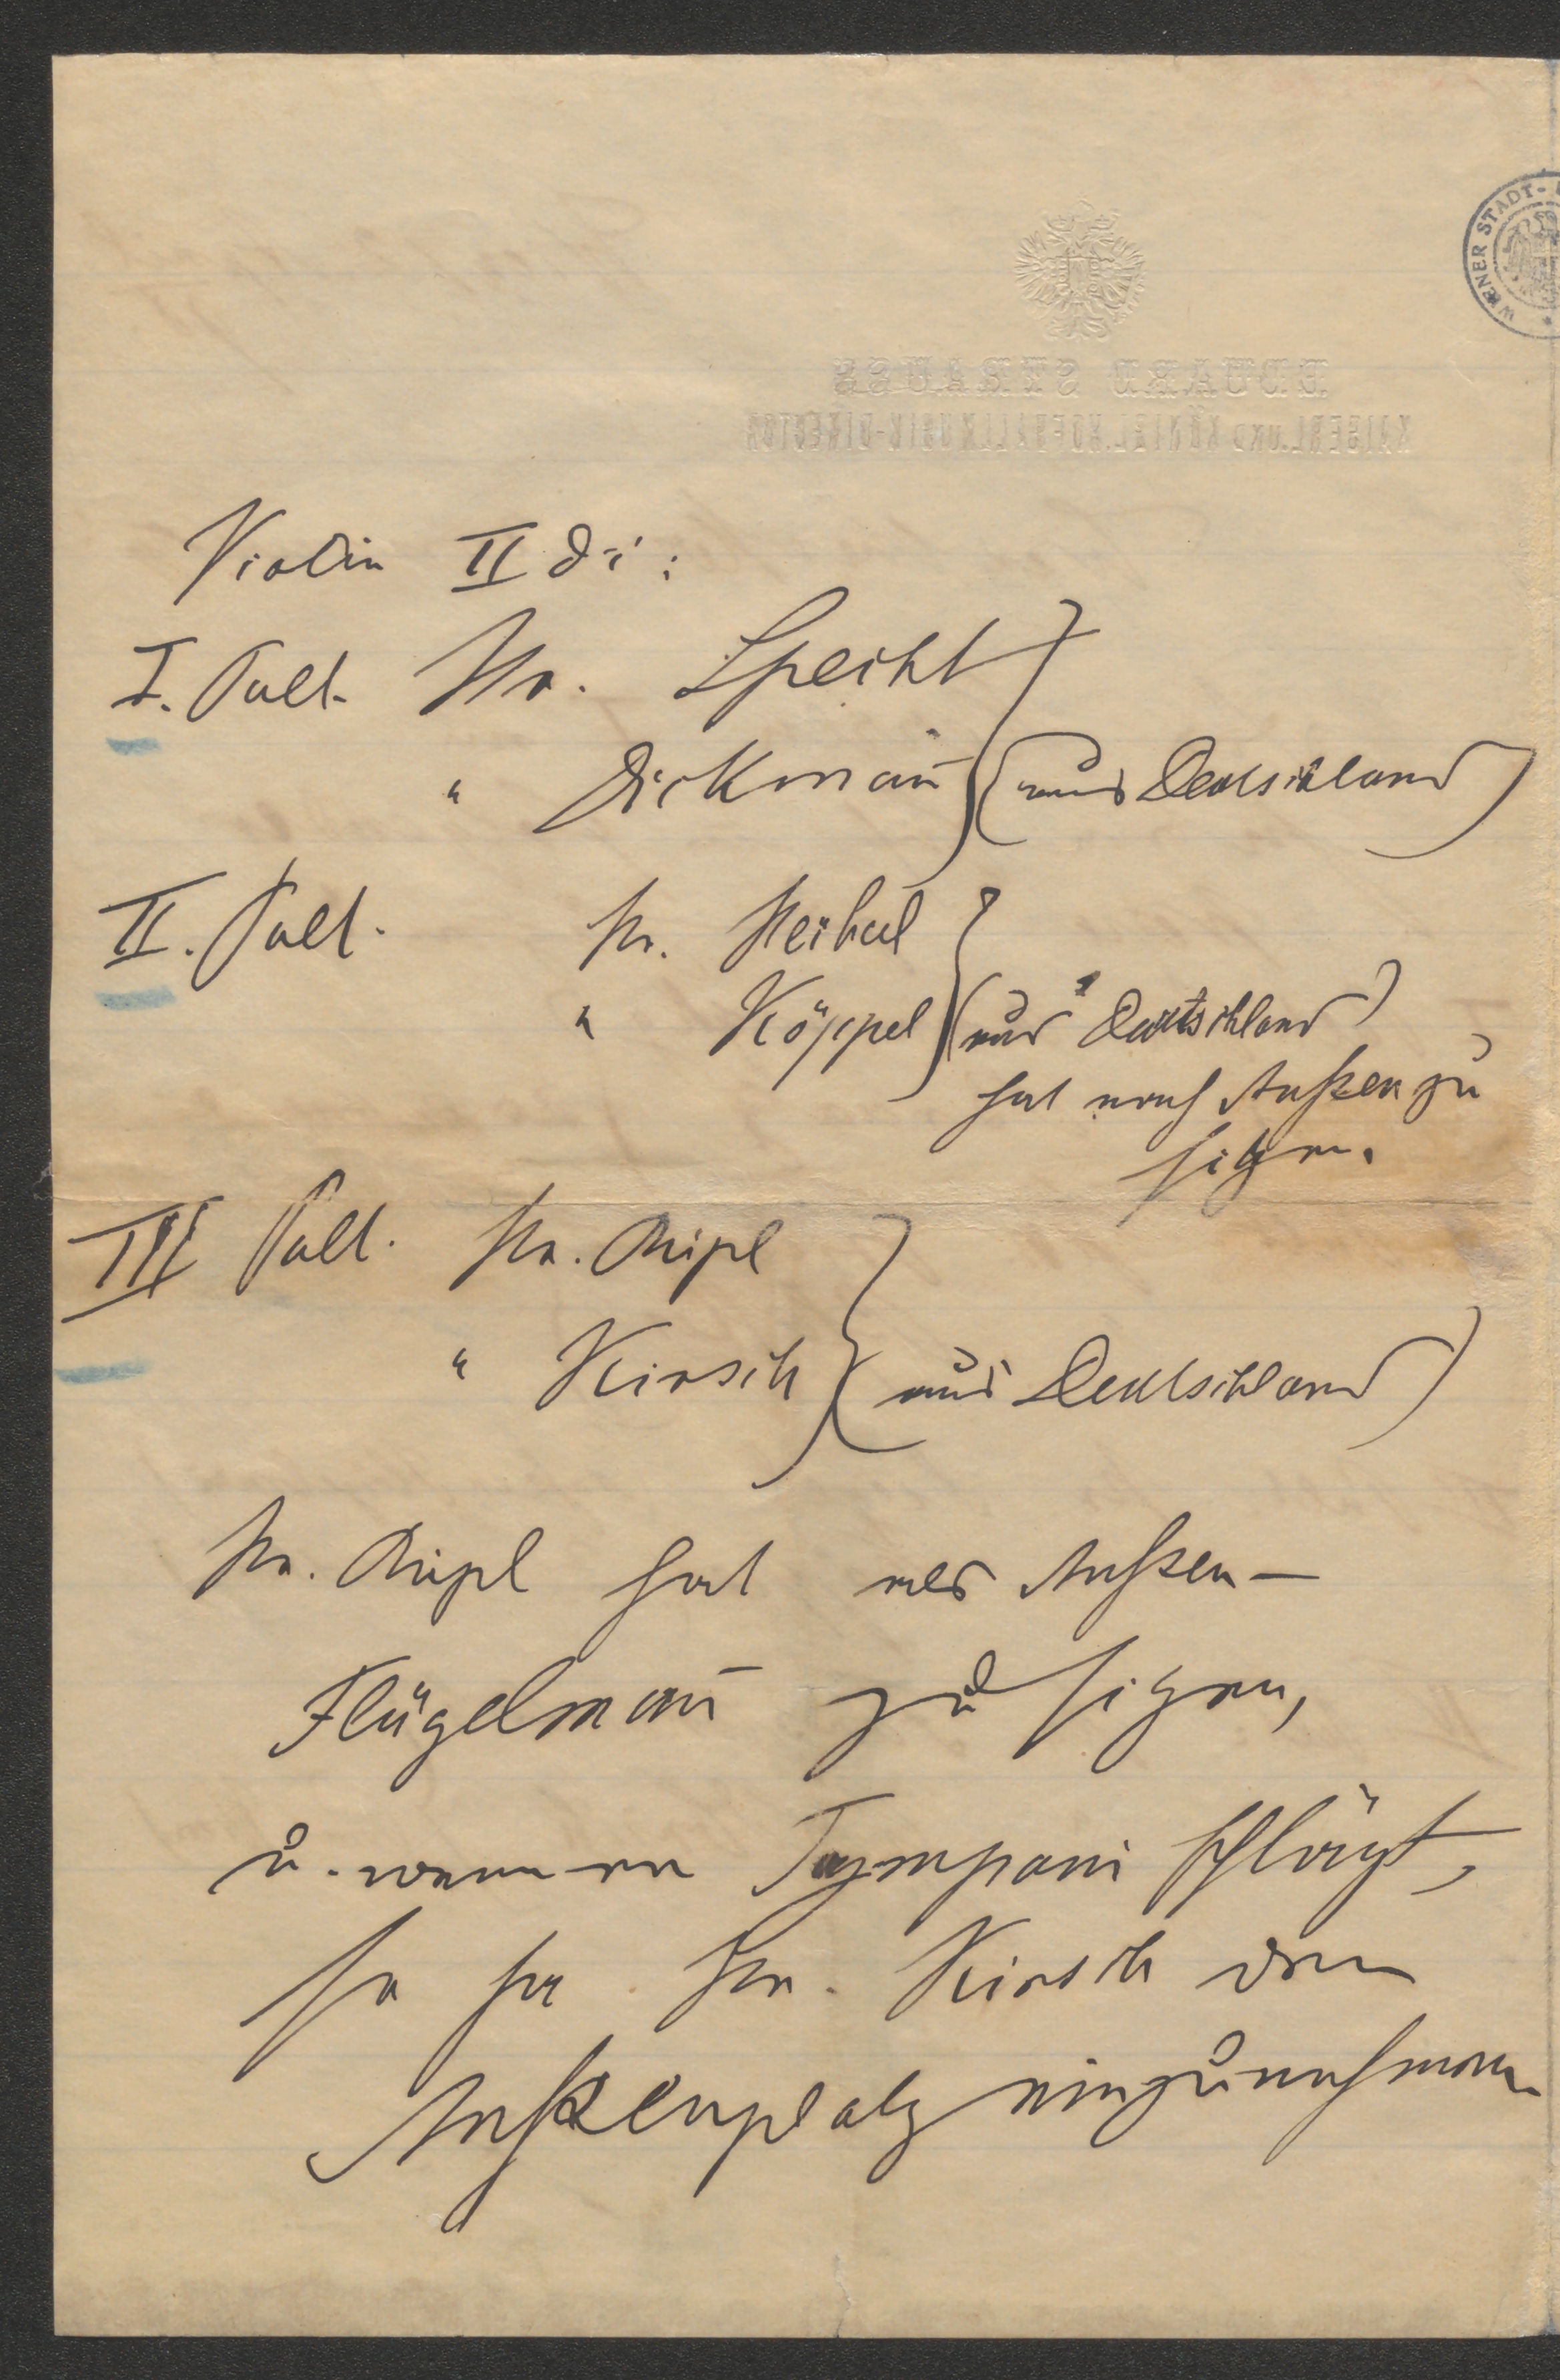 WIENER STADT-
EDUARD STRAUSS
KAISERL. UND KÖNIGL. HOFBALLMUSIK-DIRECTOR
Violin II di:
I. Pult. Hr. Specht
" Dickman̄ (aus Deutschland)
II. Pult. Hr.
" Köppel (aus Deutschland)
hat nach Außen zu
sitzen.
III Pult. Hr.
" Kirsch (aus Deutschland)
Hr. hat als Außen-
Flügelman̄ zu sitzen,
u. wenn er Tympani schlägt,
so hat Hr. Kirsch den
Außenplatz einzunehmen